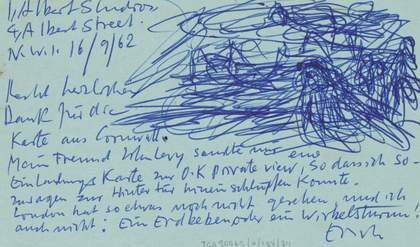 1, Albert Studios
4 Albert Street.
N.W.1. 16/9/62
Recht herzlichen
Dank für die
Karte aus Cornwall.
Mein Freund sandte mir eine
Einladungs Karte zur O.K private view, so dass ich so-
zusagen zur Hintertür hineinschlüpfen konnte.
London hat so etwas noch nicht gesehen, und ich
auch nicht! Ein Erdbeben oder ein Wirbelsturm!
Erich